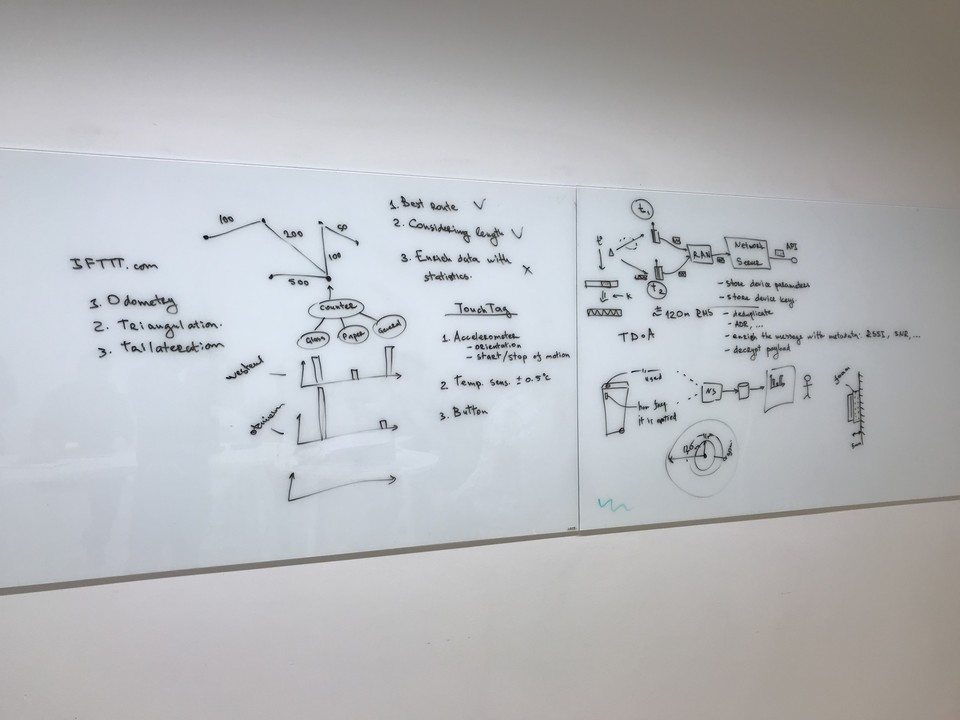 IFTTT.com
1. Odometry
2. Triangulation.
3. Tailateration
100
200
50
100
500
Counter
Glass
Paper
General
1. Best route V
2. Considering length V
3. Enrich data with
statistics. X
TouchTag
1. Accelerometer
- orientation
- start/stop of motion
2. Temp. sens. ± 0.5°C
3. Button
t1
t2
RAN
Network
Server
API
K
≈ 120m RMS
TDoA
- store device parameters
- store device key
- deduplicate
- ADR, ...
- enrich the message with metadata: RSSI, SNR, ...
- decrypt payload
used
how long
it is emptied
NS
120